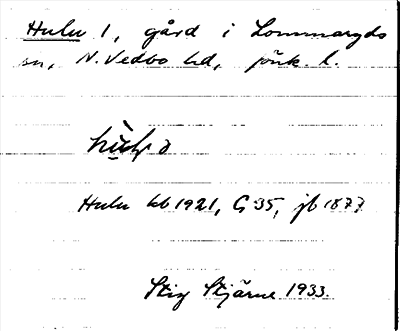 Hulu 1, gård i Lommaryds
sn, N. Vedbo hd, jönk. l.
Hulu kb 1921, G 35, jb 1877
Stig Stjärne 1933.